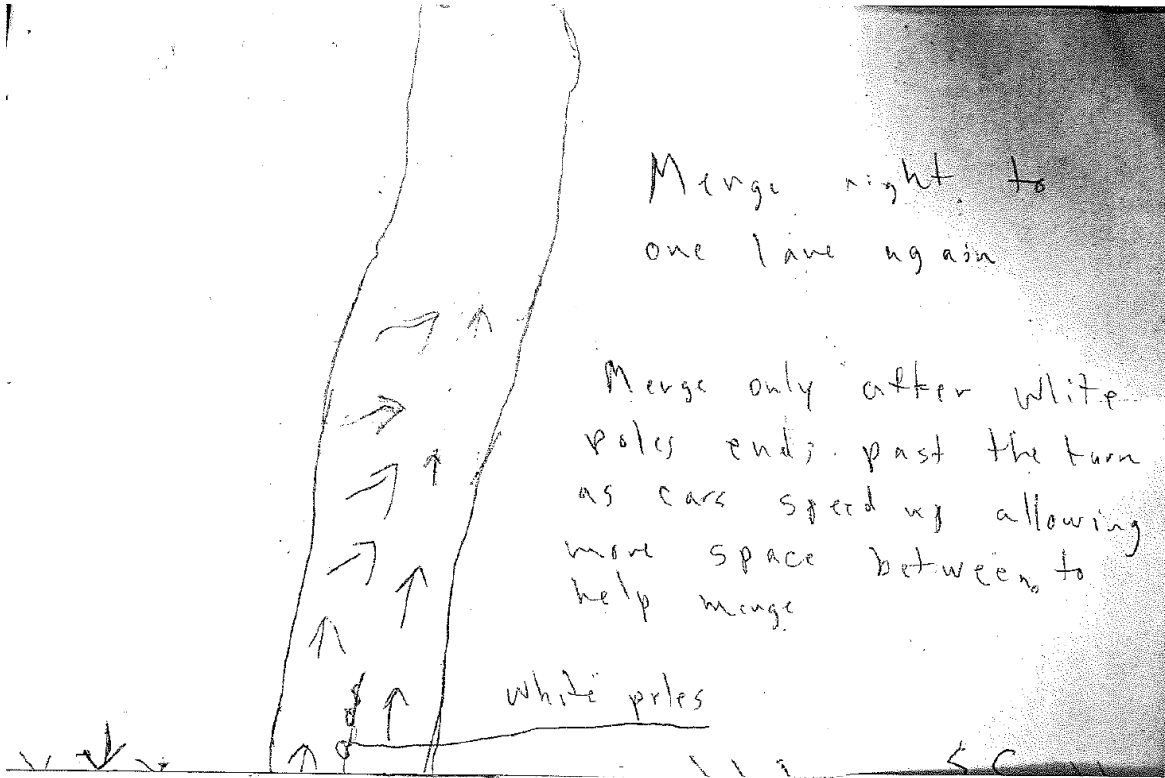 Merge right to
one lane again
Merge only after white
poles end; past the turn
as cars speed up allowing
more space between, to
help merge
white poles